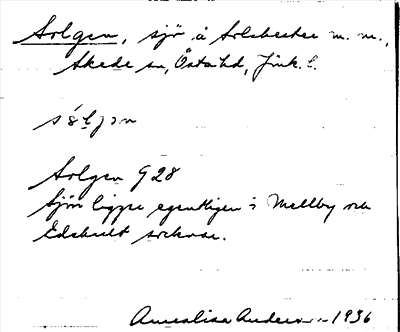 Solgen, sjö å Solsbester m. m.,
Skede sn, Östa hd, Jönk. l.
sólj̣ən
Solgen G28
Sjön ligger egentligen i Mellby och
Edshult socknar.
Annalisa Anderson 1936